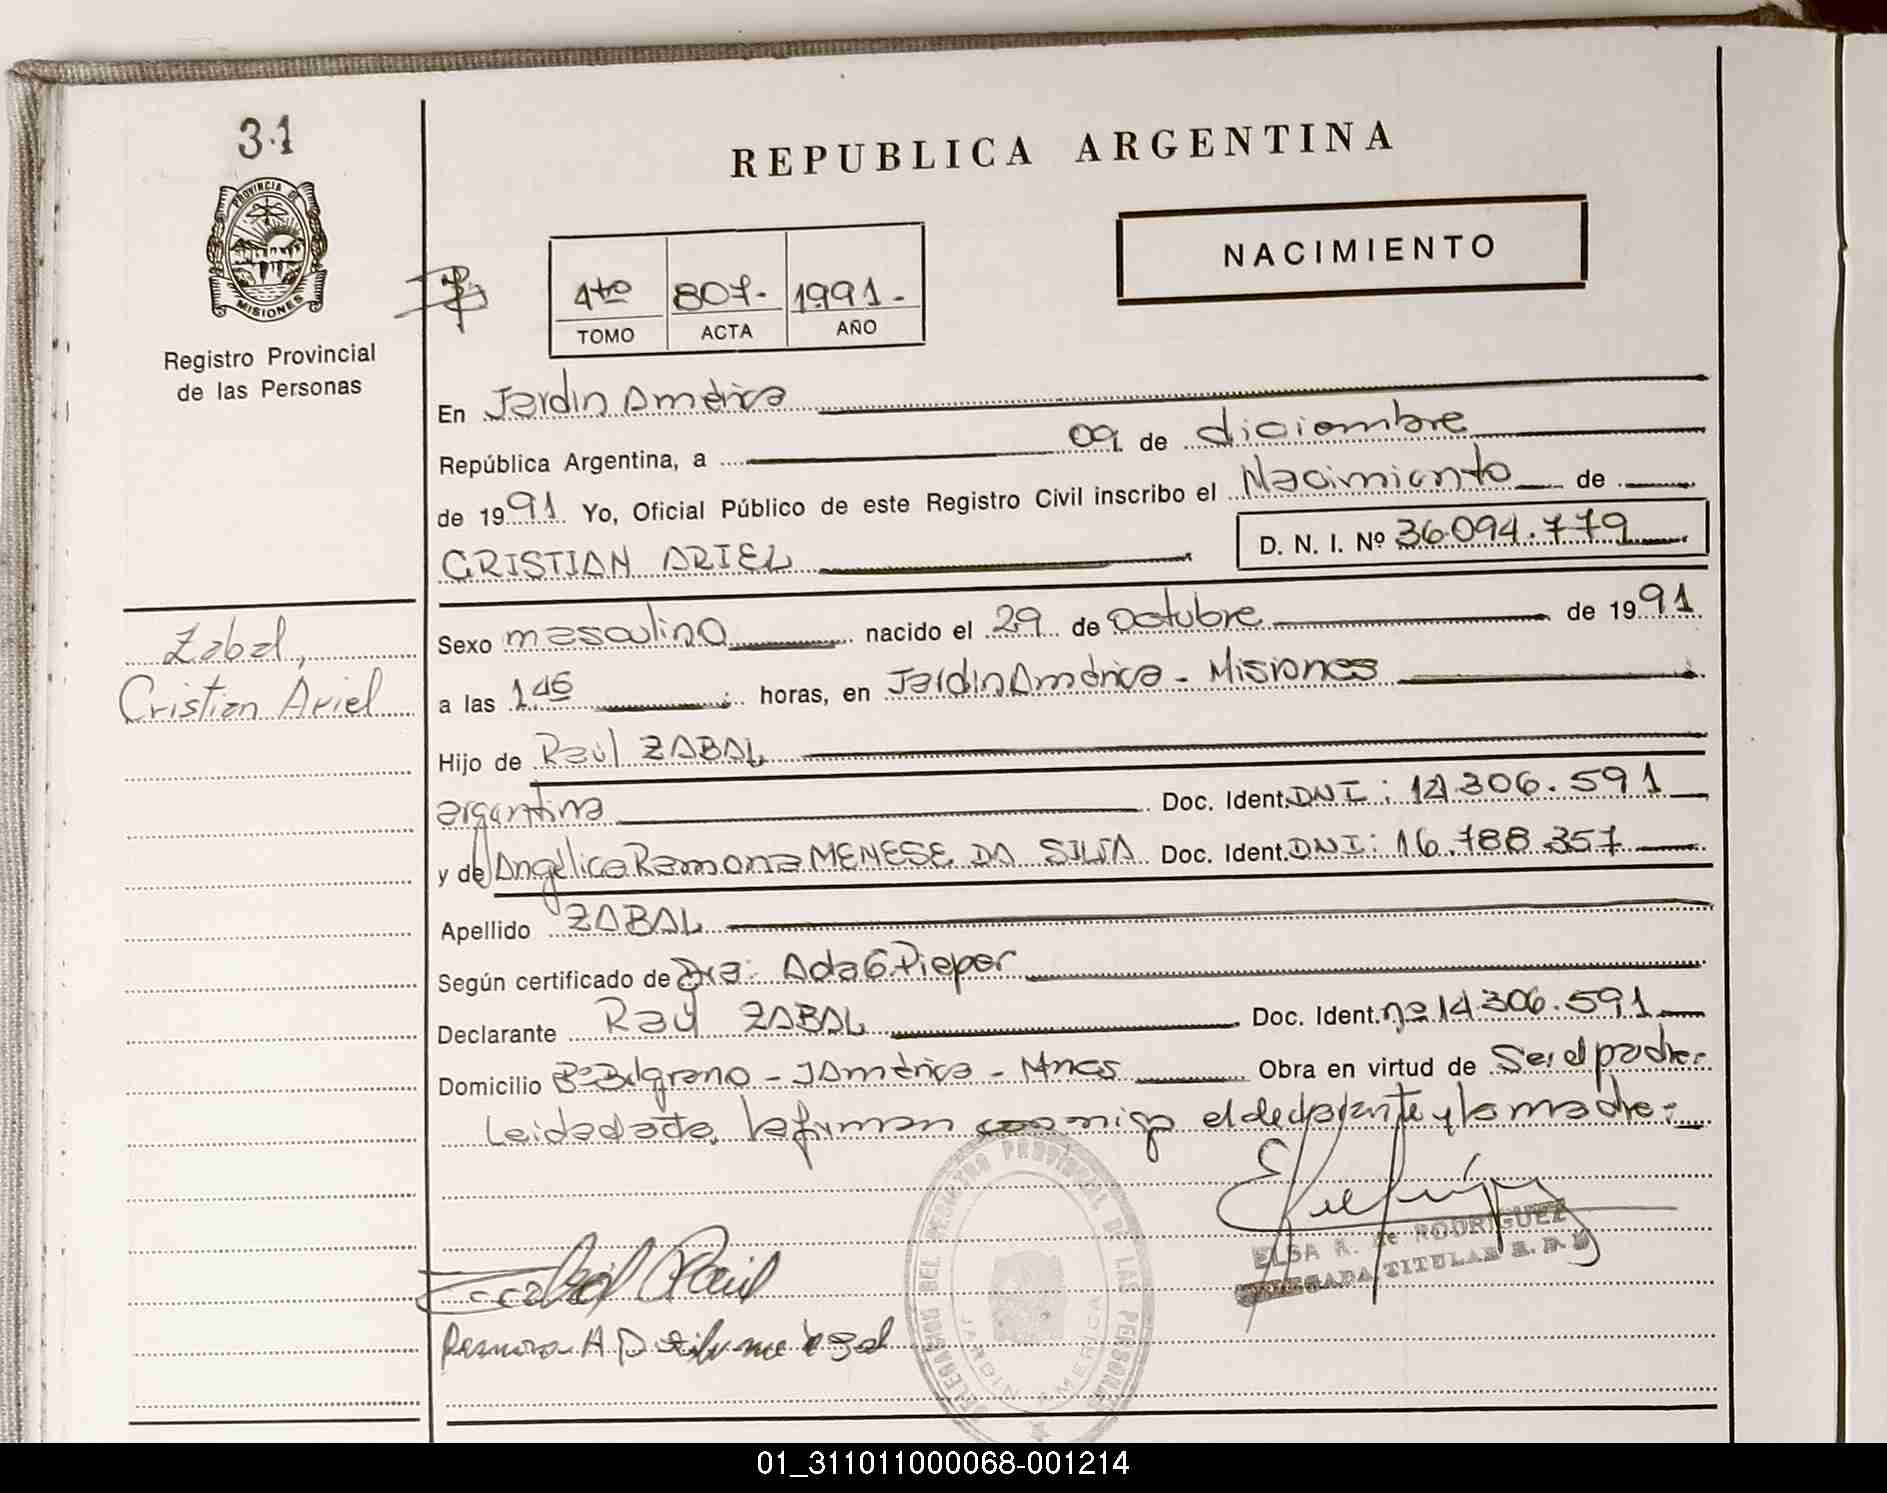 31
PROVINCIA DE
MISIONES
Registro Provincial
de las Personas
REPUBLICA ARGENTINA
NACIMIENTO
4to 807- 1991-
TOMO ACTA AÑO
En Jardin América
República Argentina, a 09 de diciembre
de 1991 Yo, Oficial Público de este Registro Civil inscribo el Nacimiento de
CRISTIAN ARIEL D. N. I. Nº 36.094.779
Zabal,
Cristian Ariel
Sexo masculino nacido el 29 de Octubre de 1991
a las 1,45 horas, en Jardin América - Misiones
Hijo de Raúl ZABAL
argentina Doc. Ident. DNI: 14.306.591
y de Angélica Ramona MENESE DA SILVA Doc. Ident. DNI: 16.788.357
Apellido ZABAL
Según certificado de Dra: Ada G. Pieper
Declarante Raúl ZABAL Doc. Ident. nº 14.306.591
Domicilio Bº Belgrano - J América - Mnes Obra en virtud de Ser el padre.
Leida el acta, la firman conmigo el declarante y la madre:
DELEGACION DEL REGISTRO PROVINCIAL DE LAS PERSONAS
JARDIN AMERICA
ELSA R. de RODRIGUEZ
DELEGADA TITULAR R. P. P.
Zabal Raul
01_311011000068-001214